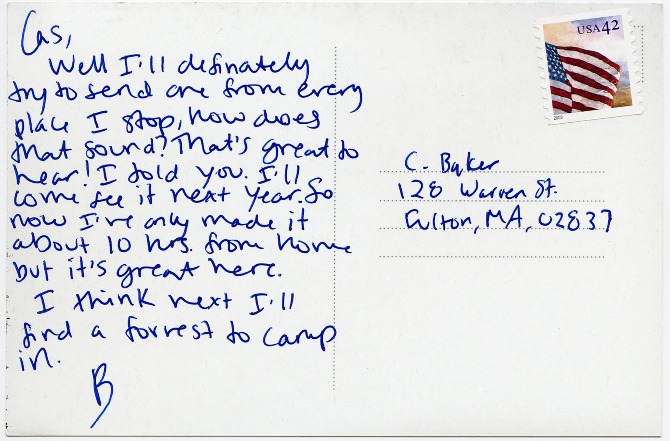 Cas,
Well I'll definately
try to send one from every
place I stop, how does
that sound? That's great to
hear! I told you I'll
come see it next year. So
now I've only made it
about 10 hrs. from home
but it's great here.
I think next I'll
find a forrest to camp
in.
B
USA 42
C. Baker
128 Warren St.
Fulton, MA, 02837